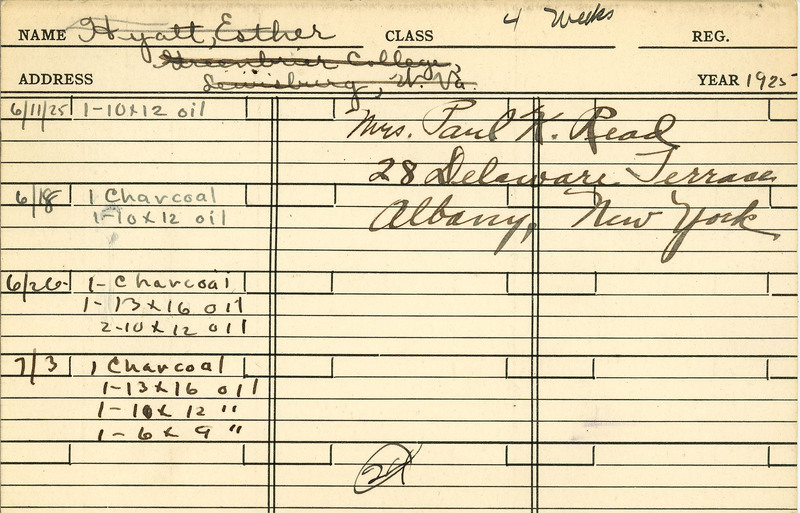 NAME Hyatt, Esther CLASS 4 Weeks REG.
Greenbrier College,
ADDRESS Lewisburg, W. Va. YEAR 1925
6/11/25 1-10x12 oil
Mrs. Paul K. Read
28 Delaware Terrace
Albany, New York
6/18 1 Charcoal
1-10x12 oil
6/26 1- Charcoal
1-13x16 oil
2-10x12 oil
7/3 1 Charcoal
1-13x16 oil
1-10x12 "
1-6x9 "